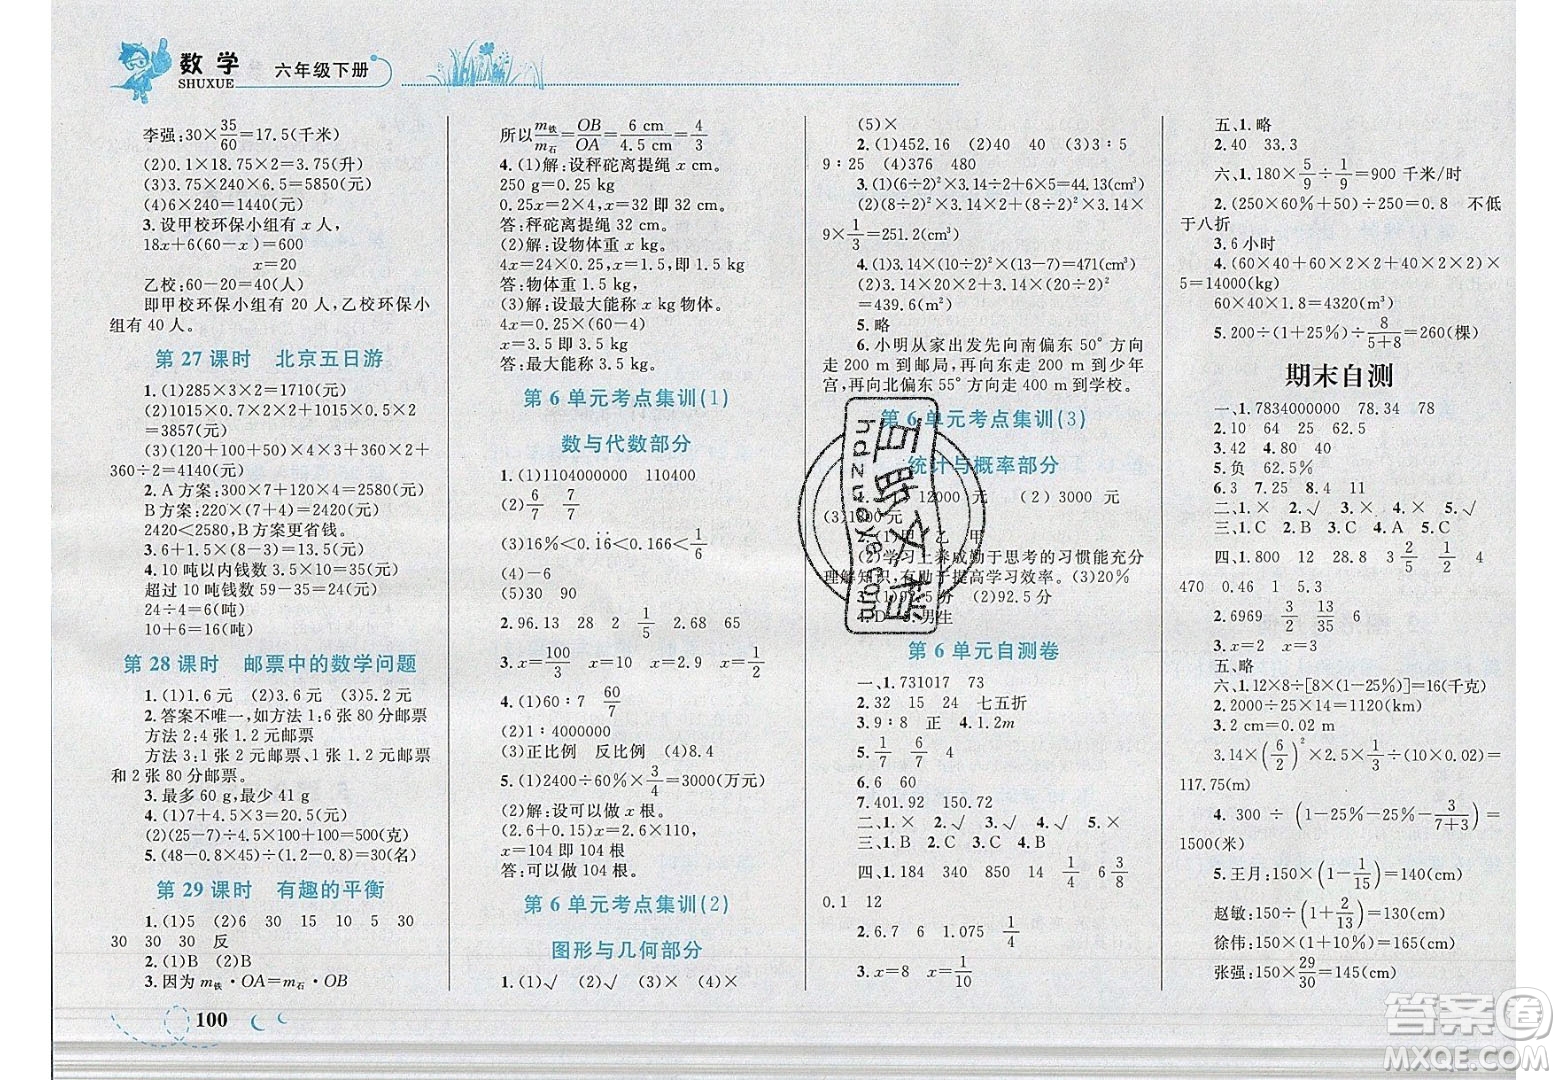 数学
SHUXUE
六年级下册
李强:30×35/60=17.5(千米)
(2)0.1×18.75×2=3.75(升)
(3)3.75×240×6.5=5850(元)
(4)6×240=1440(元)
3.设甲校环保小组有 x 人,
18x+6(60-x)=600
x=20
乙校:60-20=40(人)
即甲校环保小组有 20 人,乙校环保小
组有 40 人。
第 27 课时 北京五日游
1.(1)285×3×2=1710(元)
(2)1015×0.7×2×2+1015×0.5×2
=3857(元)
(3)(120+100+50×2)×(2+2×0.5)+
360÷2=4140(元)
2.A 方案:300×7+120×4=2580(元)
B 方案:220×(7+4)=2420(元)
2420<2580,B 方案更省钱。
3.6+1.5×(8-3)=13.5(元)
4.10 吨以内钱数 3.5×10=35(元)
超过 10 吨钱数 59-35=24(元)
24÷4=6(吨)
10+6=16(吨)
第 28 课时 邮票中的数学问题
1.(1)1.6 元 (2)3.6 元 (3)5.2 元
2.答案不唯一,如方法 1:6 张 80 分邮票
方法 2:4 张 1.2 元邮票
方法 3:1 张 2 元邮票、1 张 1.2 元邮票
和 2 张 80 分邮票。
3.最多 60 g,最少 41 g
4.(1)7+4.5×3=20.5(元)
(2)(25-7)÷4.5×100+100=500(克)
5.(48-0.8×45)÷(1.2-0.8)=30(名)
第 29 课时 有趣的平衡
1.(1)5 (2)6 30 15 10 30
30 30 30 反
2.(1)B (2)B
3.因为 m铁·OA=m石·OB
100
所以m铁/m石=OB/OA=6 cm/4.5 cm=4/3
4.(1)解:设秤砣离提绳 x cm。
250 g=0.25 kg
0.25x=2×4,x=32 即 32 cm。
答:秤砣离提绳 32 cm。
(2)解:设物体重 x kg。
4x=24×0.25,x=1.5,即 1.5 kg
答:物体重 1.5 kg。
(3)解:设最大能称 x kg 物体。
4x=0.25×(60-4)
x=3.5 即 3.5 kg
答:最大能称 3.5 kg。
第 6 单元考点集训(1)
数与代数部分
1.(1)1104000000 110400
(2)6/7 7/7
(3)16%<0.1̇6̇<0.166<1/6
(4)-6
(5)30 90
2.96.13 28 2 1/5 2.68 65
3.x=100/3 x=16 x=4 x=1/2
4.(1)60∶7 60/7
(2)1∶4000000
(3)正比例 反比例 (4)8.4
5.(1)2400÷60%×3/4=3000(万元)
(2)解:设可以做 x 根。
(2.6+0.15)x=2.2×130
x=104 即 104 根
答:可以做 104 根。
第 6 单元考点集训(2)
图形与几何部分
1.(1)√ (2)√ (3)× (4)×
(5)×
2.(1)452.16 (2)40 40 (3)3∶5
9∶25 (4)376 480
3.(1)(6÷2)²×3.14×2÷6×5=44.13(cm³)
(2)(8÷2)²×3.14×2+(8÷2)²×3.14×
9×1/3=251.2(cm³)
4.(1)3.14×(10÷2)²×(13-7)=471(cm³)
(2)3.14×20×2+3.14×(20÷2)²×1
=439.6(m²)
5.略
6.小明从家出发先向南偏东 50°方向
走 200 m 到邮局,再向东走 200 m 到少年
宫,再向北偏东 55°方向走 400 m 到学校。
第 6 单元考点集训(3)
统计与概率部分
12000 元 (2) 3000 元
甲 乙 甲
(2)学习上养成勤于思考的习惯能充分
理解知识,有助于提高学习效率。(3)20%
3.(1)92.5 分 (2)92.5 分
4.D 5.男生
第 6 单元自测卷
一、1.731017 73
2.32 15 24 七五折
3.9∶8 正 4.1.2m
5.1/7 6/7 4
6.6 60
7.401.92 150.72
二、1.× 2.√ 3.√ 4.√ 5.×
三、1.B 2.C 3.B 4.C
四、1.184 340 850 14 1/4 6 3/8
0.1 12
2.6.7 6 1.075 1/4
3.x=8 x=1/10
五、1.略
2.40 33.3
六、1.180×5/9÷1/9=900 千米/时
2.(250×60%+50)÷250=0.8 不低
于八折
3.6 小时
4.(60×40+60×2×2+40×2×2)×
5=14000(kg)
60×40×1.8=4320(m³)
5.200÷(1+25%)÷8/(5+8)=260(棵)
期末自测
一、1.7834000000 78.34 78
2.10 64 25 62.5
3.42 4.80
5.负 62.5%
6.3 7.25 8.4 11
二、1.× 2.√ 3.× 4.× 5.√
三、1.C 2.B 3.C 4.A 5.C
四、1.800 12 28.8 3 2/5 1/2 4
470 0.46 1 5.3
2.6969 3/2 13/35 2
3.x=1.6 x=6 x=9
五、略
六、1.12×8÷[8×(1-25%)]=16(千克)
2.2000÷25×14=1120(km)
3.2 cm=0.02 m
3.14×(6/2)²×2.5×1/3÷(10×0.02)=
117.75(m)
4. 300 ÷ (1-25%-25%-3/(7+3))=
1500(米)
5.王月:150×(1-1/15)=140(千米)
赵敏:150÷(1+2/13)=130(千米)
徐伟:150×2-140=160(千米)
张强:150×29/30=145(千米)
百路文库
hazuoye.com
答案圈
MXQE.COM